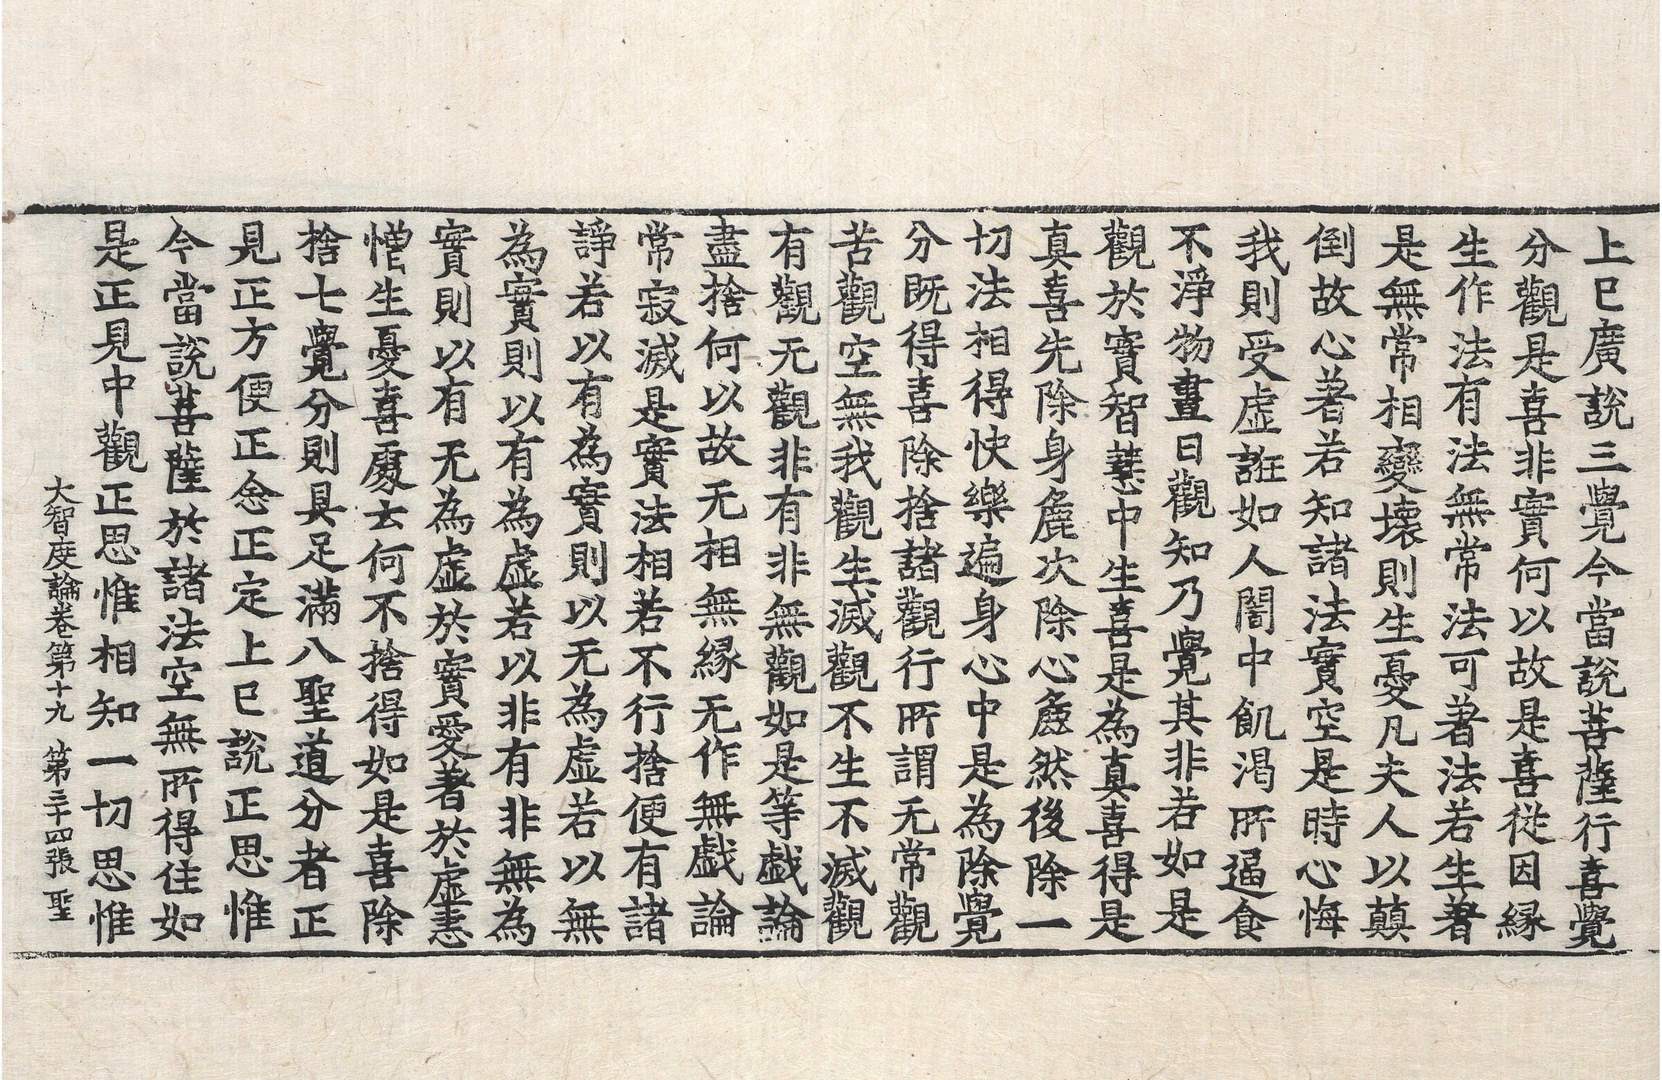 上已廣說三覺今當說菩薩行喜覺
分觀是喜非實何以故是喜從因緣
生作法有法無常法可著法若生著
是無常相變壞則生憂凡夫人以顛
倒故心著若知諸法實空是時心悔
我則受虛誑如人闇中飢渴所逼食
不淨物晝日觀知乃覺其非若如是
觀於實智慧中生喜是為真喜得是
真喜先除身麁次除心麁然後除一
切法相得快樂遍身心中是為除覺
分既得喜除捨諸觀行所謂无常觀
苦觀空無我觀生滅觀不生不滅觀
有觀无觀非有非無觀如是等戱論
盡捨何以故无相無緣无作無戱論
常寂滅是實法相若不行捨便有諸
諍若以有為實則以无為虛若以無
為實則以有為虛若以非有非無為
實則以有无為虛於實愛著於虛恚
憎生憂喜處云何不捨得如是喜除
捨七覺分則具足滿八聖道分者正
見正方便正念正定上已說正思惟
今當說菩薩於諸法空無所得住如
是正見中觀正思惟相知一切思惟
大智度論卷第十九 第二十四張 聖